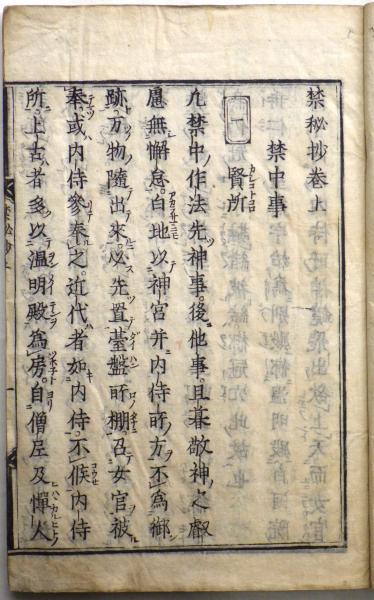 禁秘抄巻上
禁中事
一
賢所
カシコトコロ
凡禁中作法先神事後他事旦暮敬神之叡
慮無懈怠白地以神宮并内侍所方不為御
跡万物随出来必先置薹盤所棚召女官被
奉或内侍参奉之近代者如内侍不候内侍
所上古者多以温明殿為房自僧尼及憚人